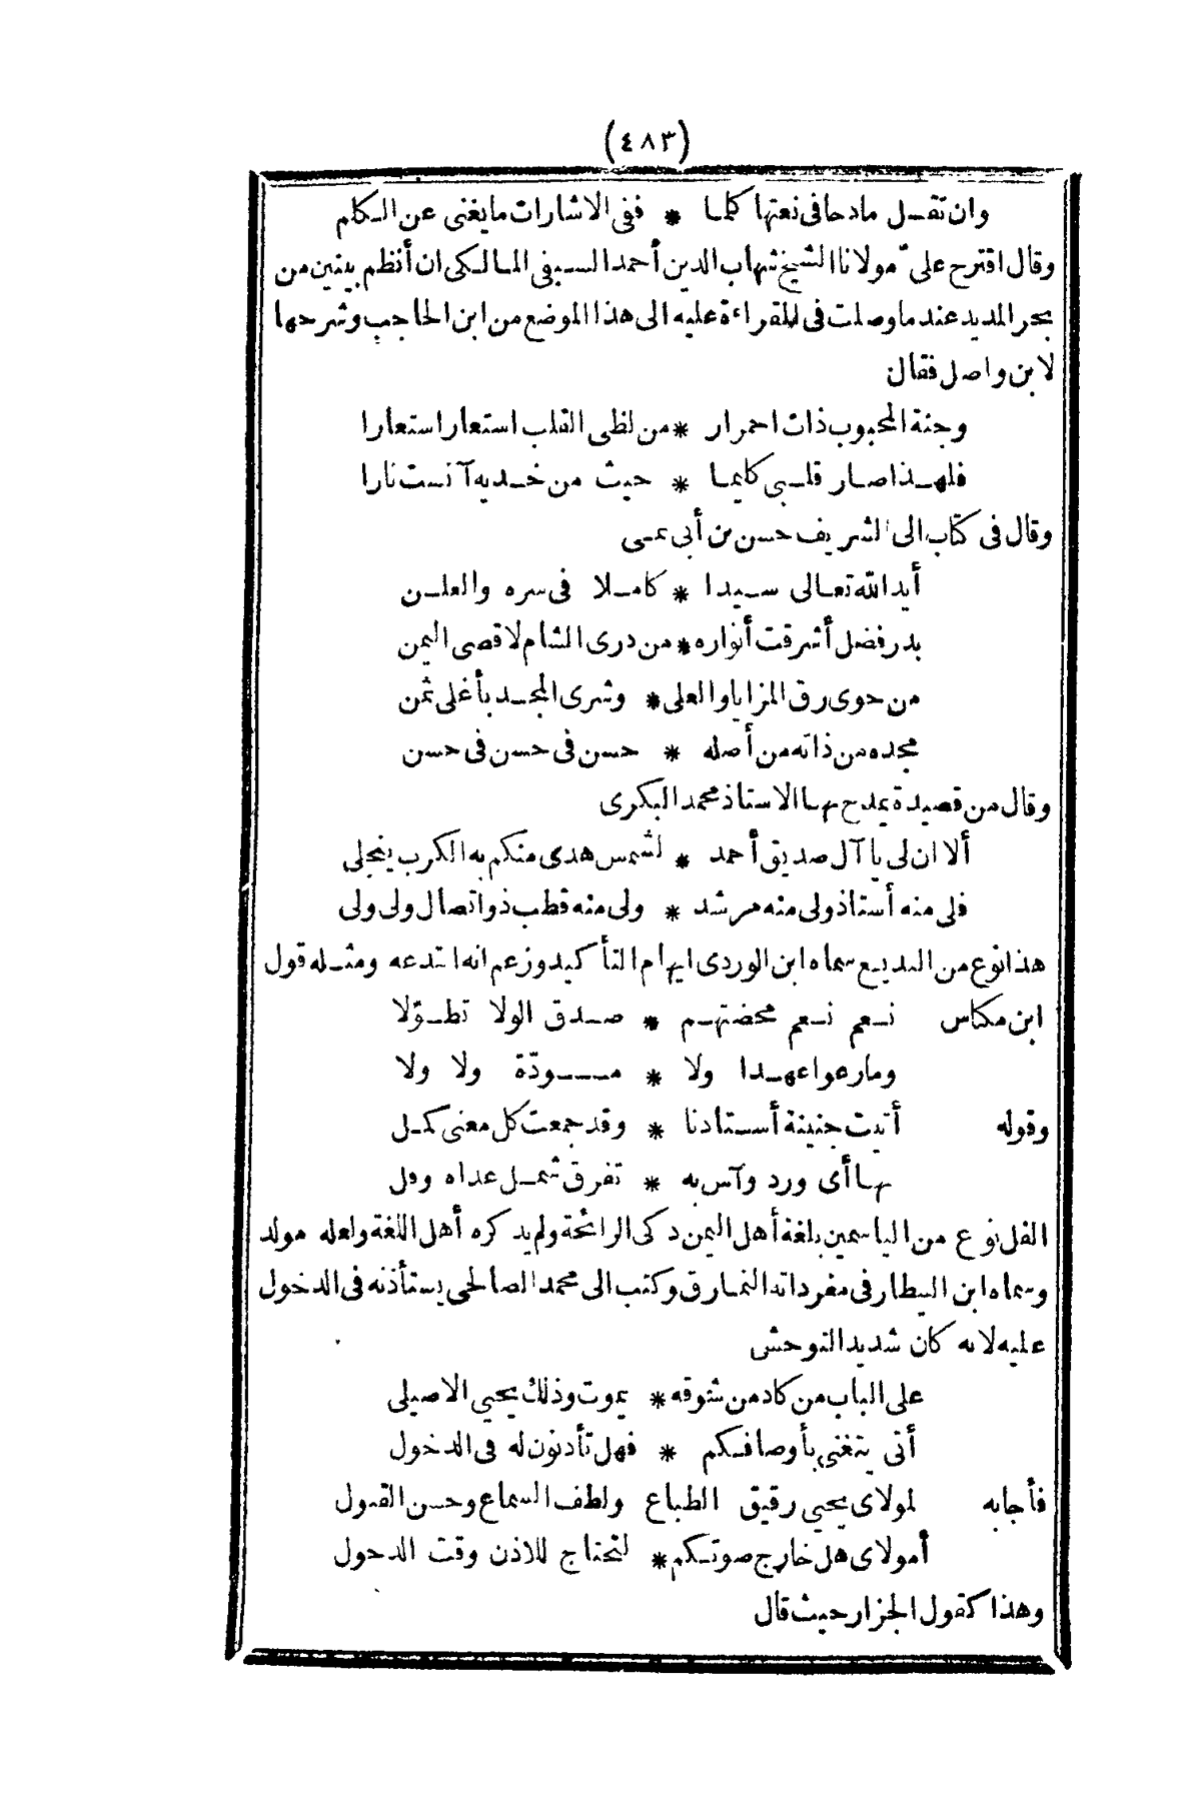 (٤٨٣)
وان تقـل مادحا فى نعتها كلما * ففى الاشارات ما يغنى عن الـكلم
وقال اقترح علىّ مولانا الشيخ شهاب الدين أحمد السـيفى المـالـكى ان أنظم بيتين من
بحر المديد عند ما وصلت فى القراءة عليه الى هذا الموضع من ابن الحاجب وشرحها
لابن واصل فقال
وجنة المحبوب ذات احمرار * من لظى القلب استعار استعارا
فلهـذا صـار قلـبى كليمـا * حيث من خـديه آنست نارا
وقال فى كتاب الى الشريف حسن بن أبى نمـى
أيد الله تعـالى سـيدا * كامـلا فى سره والعلـن
بدر فضل أشرقت أنواره * من ذرى الشام لاقصى اليمن
من حوى رق المزايا والعلى * وشرى المجـد بأغلى ثمن
مجده من ذاته من أصله * حسن فى حسن فى حسن
وقال من قصيدة يمدح بهـا الاستاذ محمد البكرى
ألا ان لى يا آل صديق أحمد * لشمس هدى منكم به الكرب ينجلى
فلى منه أستاذ ولى منه مرشد * ولى منه قطب ذو اتصال ولى ولى
هذا نوع من البديـع سماه ابن الوردى ايهام التأكيد وزعم انه ابتدعه ومثـله قول
ابن مكناس نـعم نـعم محضتهـم * صـدق الولا تطـوّلا
وما رعوا عهـدا ولا * مـــودّة ولا ولا
وقوله أتيت جنينة أسـتادنا * وقد جمعت كل معنى كمـل
بهـا أى ورد وآس به * تفرق شمـل عداه وفل
الفل نوع من الياسمين بلغة أهل اليمن ذكى الرائحة ولم يذكره أهل اللغة ولعله مولد
وسماه ابن البيطار فى مفرداته النمـارق وكتب الى محمد الصالحى يستأذنه فى الدخول
عليه لانه كان شديد التوحش
على الباب من كاد من شوقه * يموت وذلك يحيى الاصيلى
أتى يتغنى بأوصافـكم * فهل تأذنون له فى الدخول
فأجابه لمولاى يحيى رقيق الطباع ولطف السماع وحسن القبول
أمولاى هل خارج صوتـكم * لتحتاج للاذن وقت الدخول
وهذا كقول الجزار حيث قال